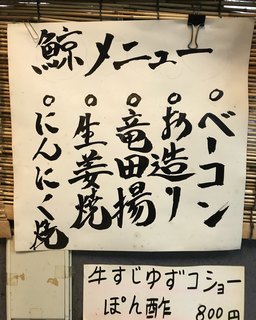 鯨メニュー
○ベーコン
○お造り
○竜田揚
○生姜焼
○にんにく焼
牛すじゆずコショー
ぽん酢 800円